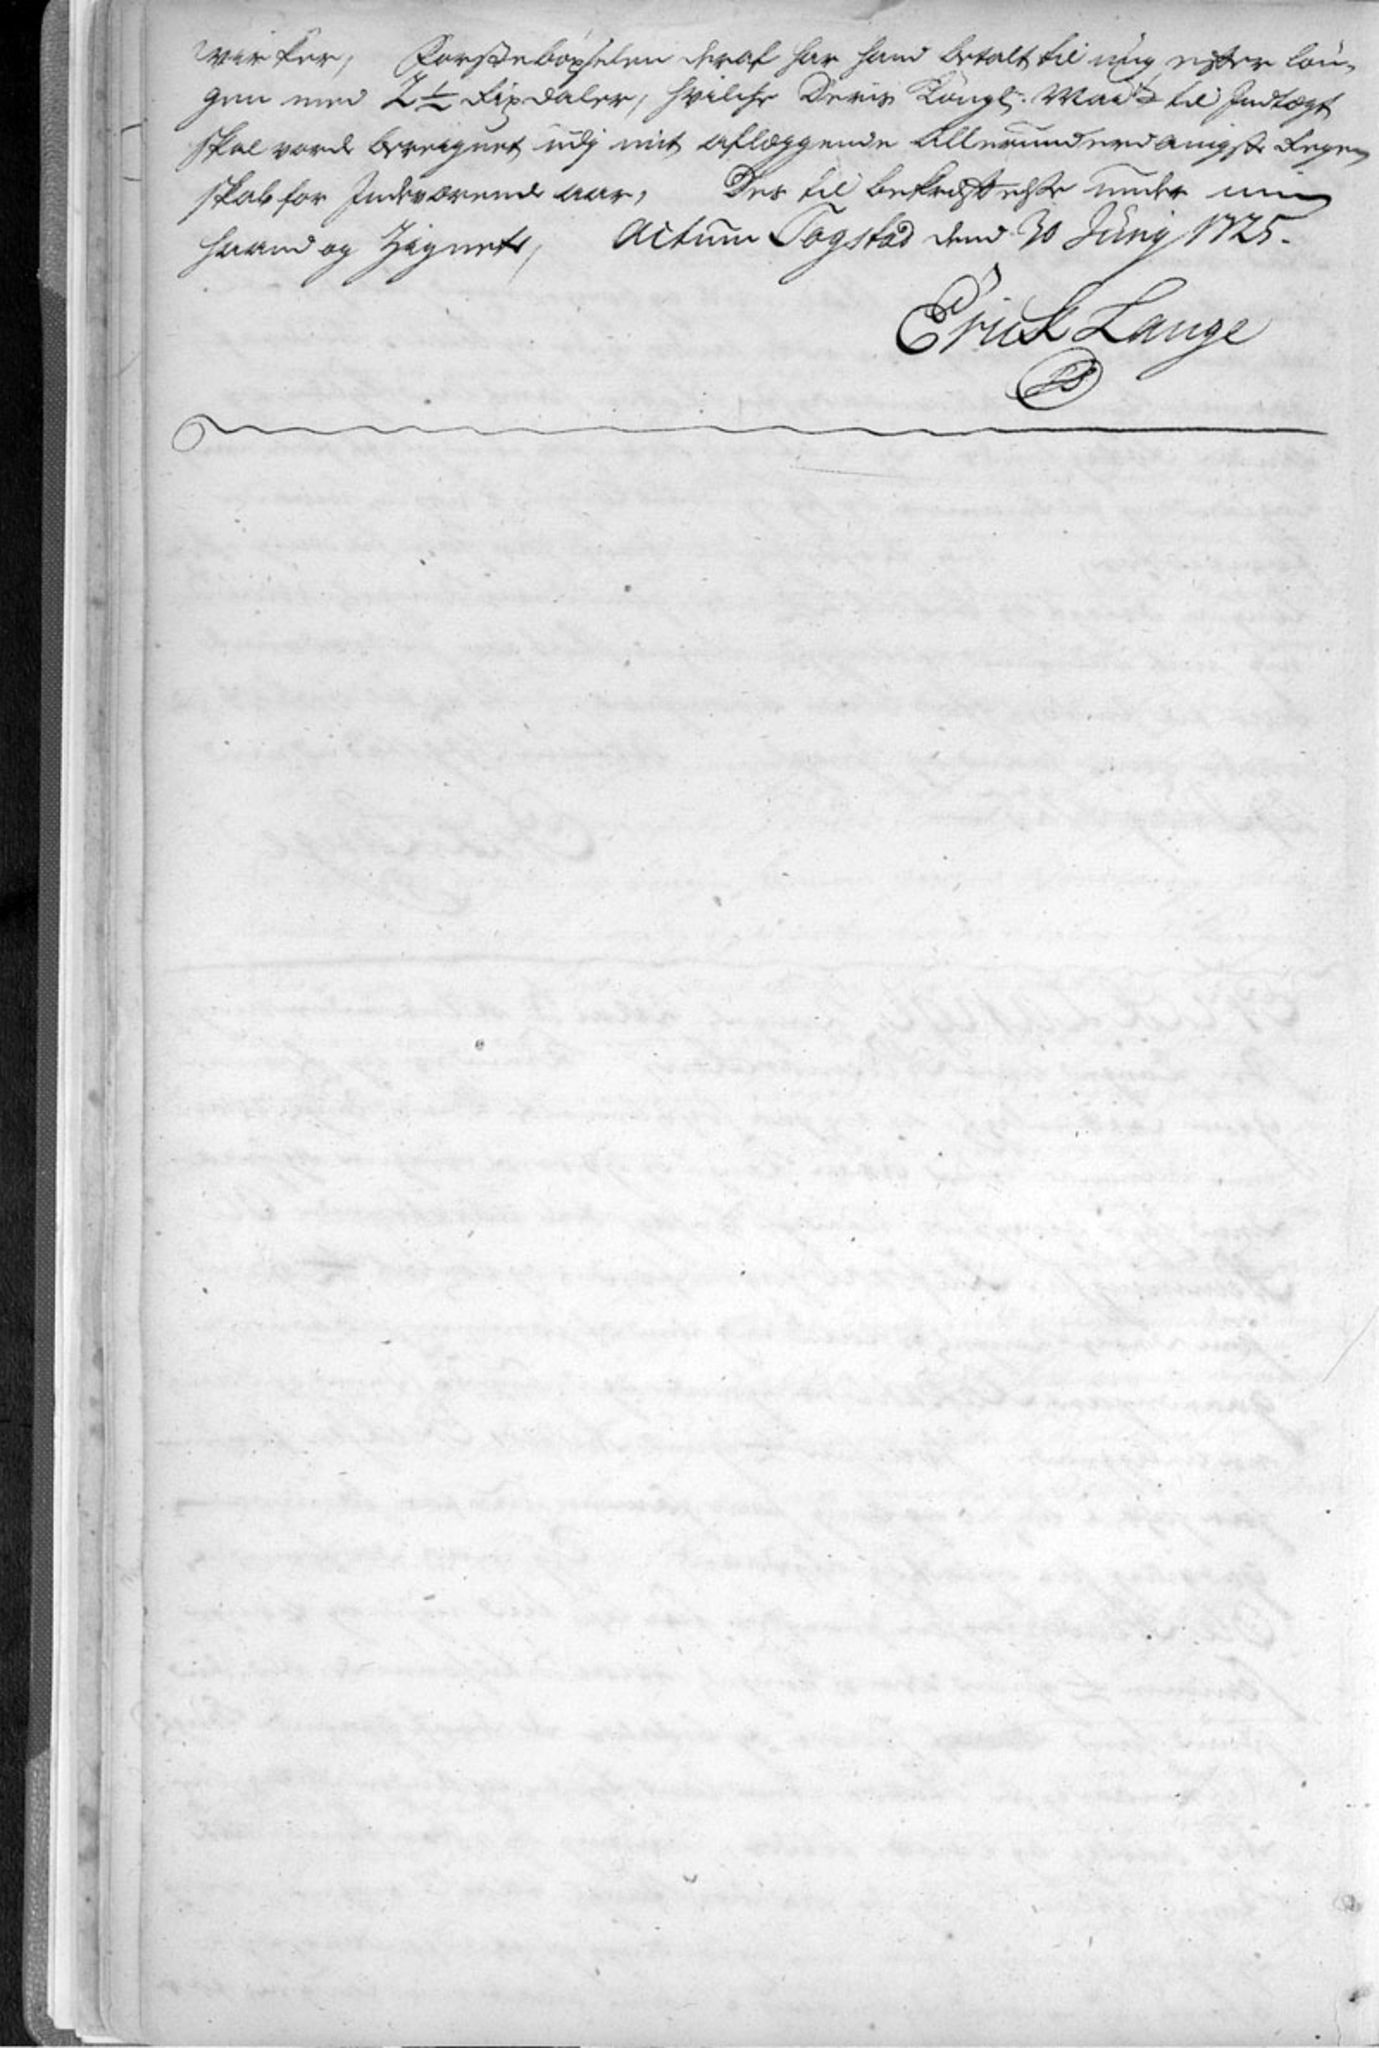 virker, Førstebøxselen deraf har hand betalt til mig efter lou-
gen med 2½ Rixdaler, hvilche Deris Kongl. Mai.ts til Indtægt
skal vorde bereignet udj mit aflæggende allerunderdanigste Regen
skab for Indeværende aar, Des til bekræftelse under min
haand og Zignete, Actum Togstad dend 30 Junij 1725.
Erick Lange